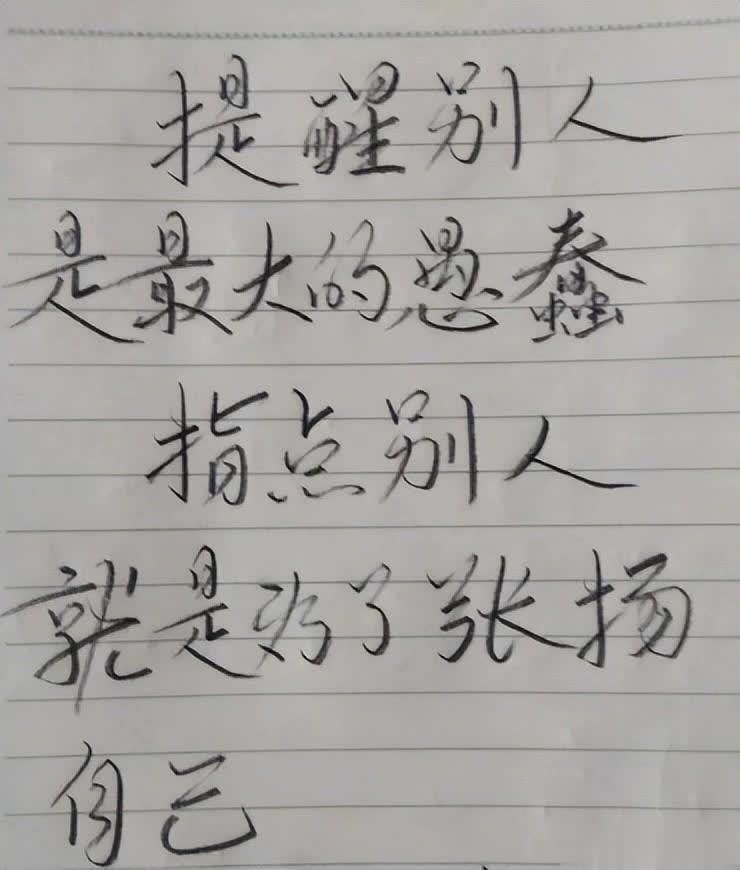 提醒别人
是最大的愚蠢
指点别人
就是为了张扬
自己